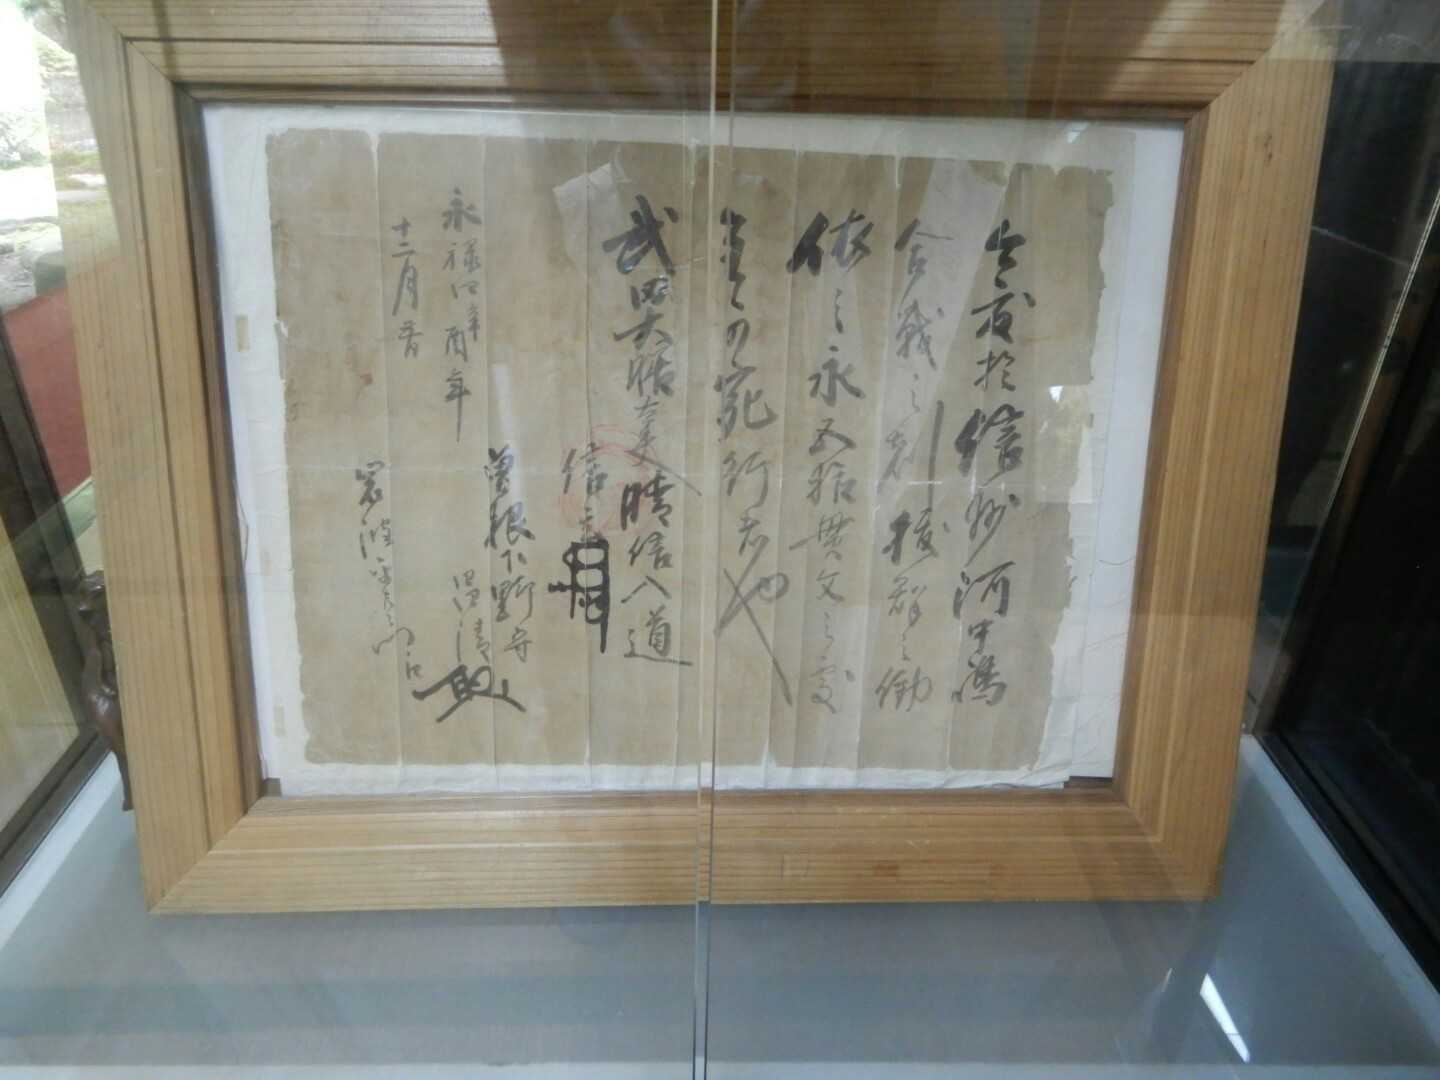 今度於信州河中嶋
合戦之刻抜群之働
依之永五拾貫文之處
宛行者也
武田大膳大夫晴信入道
信玄
曽根下野守
昌清
永禄四辛酉年
十二月
岩波